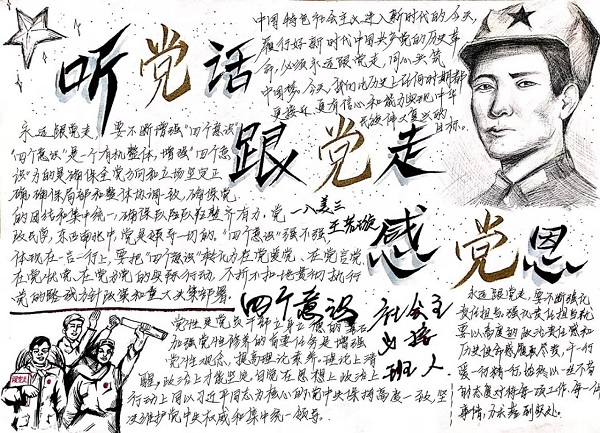 中国特色社会主义进入新时代的今天,
履行好新时代中国共产党的历史革
命,必须永远跟党走,同心共筑
中国梦。今天,我们比历史上任何时期都
更接近、更有信心和能力实现中华
民族伟大复兴的
目标。
听党话
跟党走
感党恩
永远跟党走,要不断增强"四个意识"
"四个意识"是一个有机整体,增强"四个意
识"为的是确保全党方向和立场坚定正
确,确保局部和整体协调一致,确保党
的团结和集中统一,确保队伍整齐有力,党
政民学,东西南北中,党是领导一切的。"四个意识"强不强,
体现在一言一行上,要把"四个意识"
在党忧党、在党为党的实际行动,不折不扣地贯彻执行
党的路线方针政策和重大决策部署。
一八美三
四个意识
党性是党员干部立身立德的基石
加强党性修养的首要任务是增强
党性观念,提高理论素养,理论上清
醒,政治上才能坚定自觉在思想上政治上
行动上同以习近平同志为核心的党中央保持高度一致,坚
决维护党中央权威和集中统一领导。
社会主
义接
班人
永远跟党走,要不断强化
责任担当
要以高度的政治责任感和
历史使命感履职尽责,干一行
爱一行精一行,始终以一丝不苟
的态度对待每一项工作,每一件
事情,